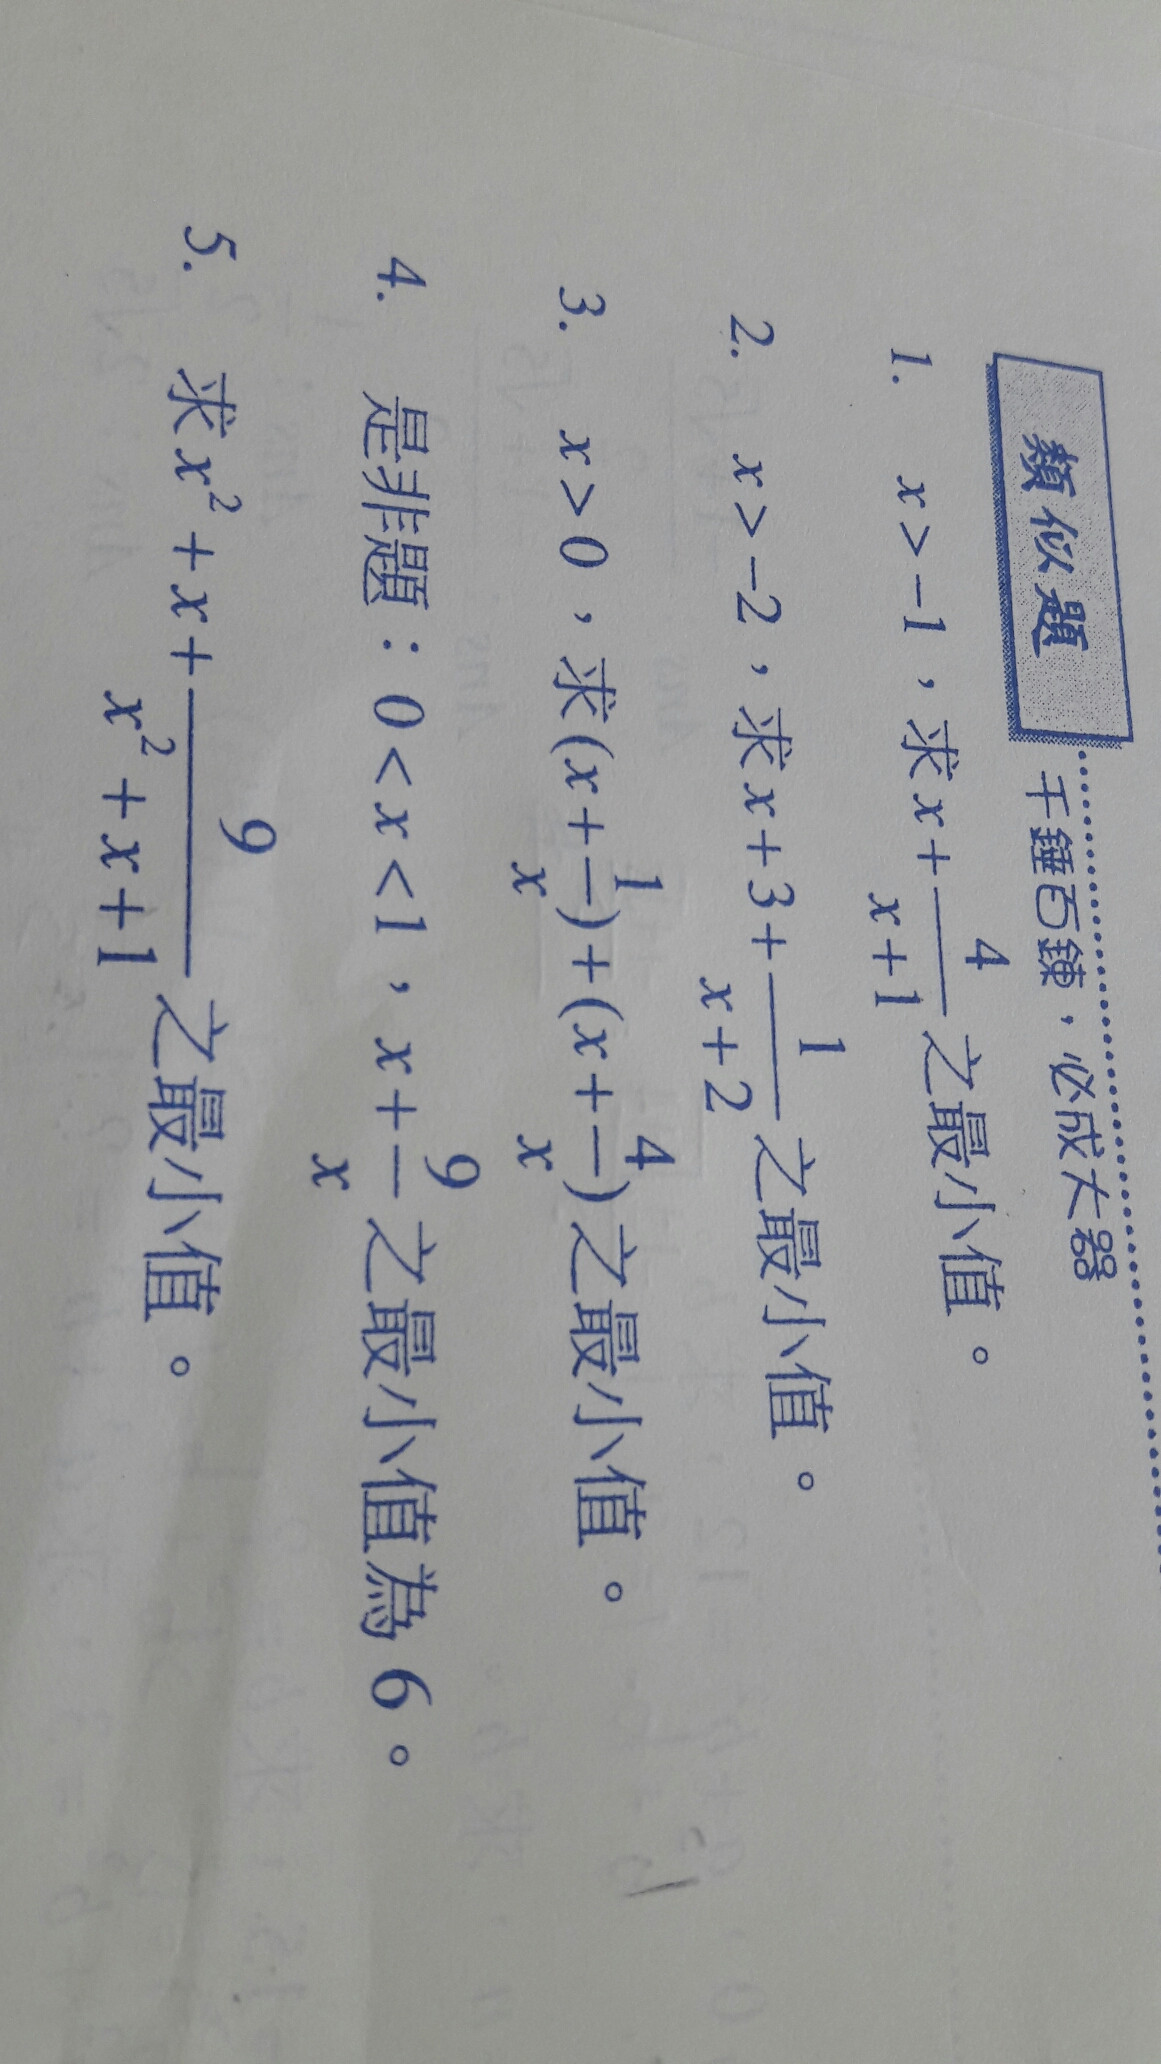 類似題 千錘百鍊，必成大器
1. x>−1，求x+4/(x+1)之最小值。
2. x>−2，求x+3+1/(x+2)之最小值。
3. x>0，求(x+1/x)+(x+4/x)之最小值。
4. 是非題：0<x<1，x+9/x之最小值為6。
5. 求x²+x+9/(x²+x+1)之最小值。